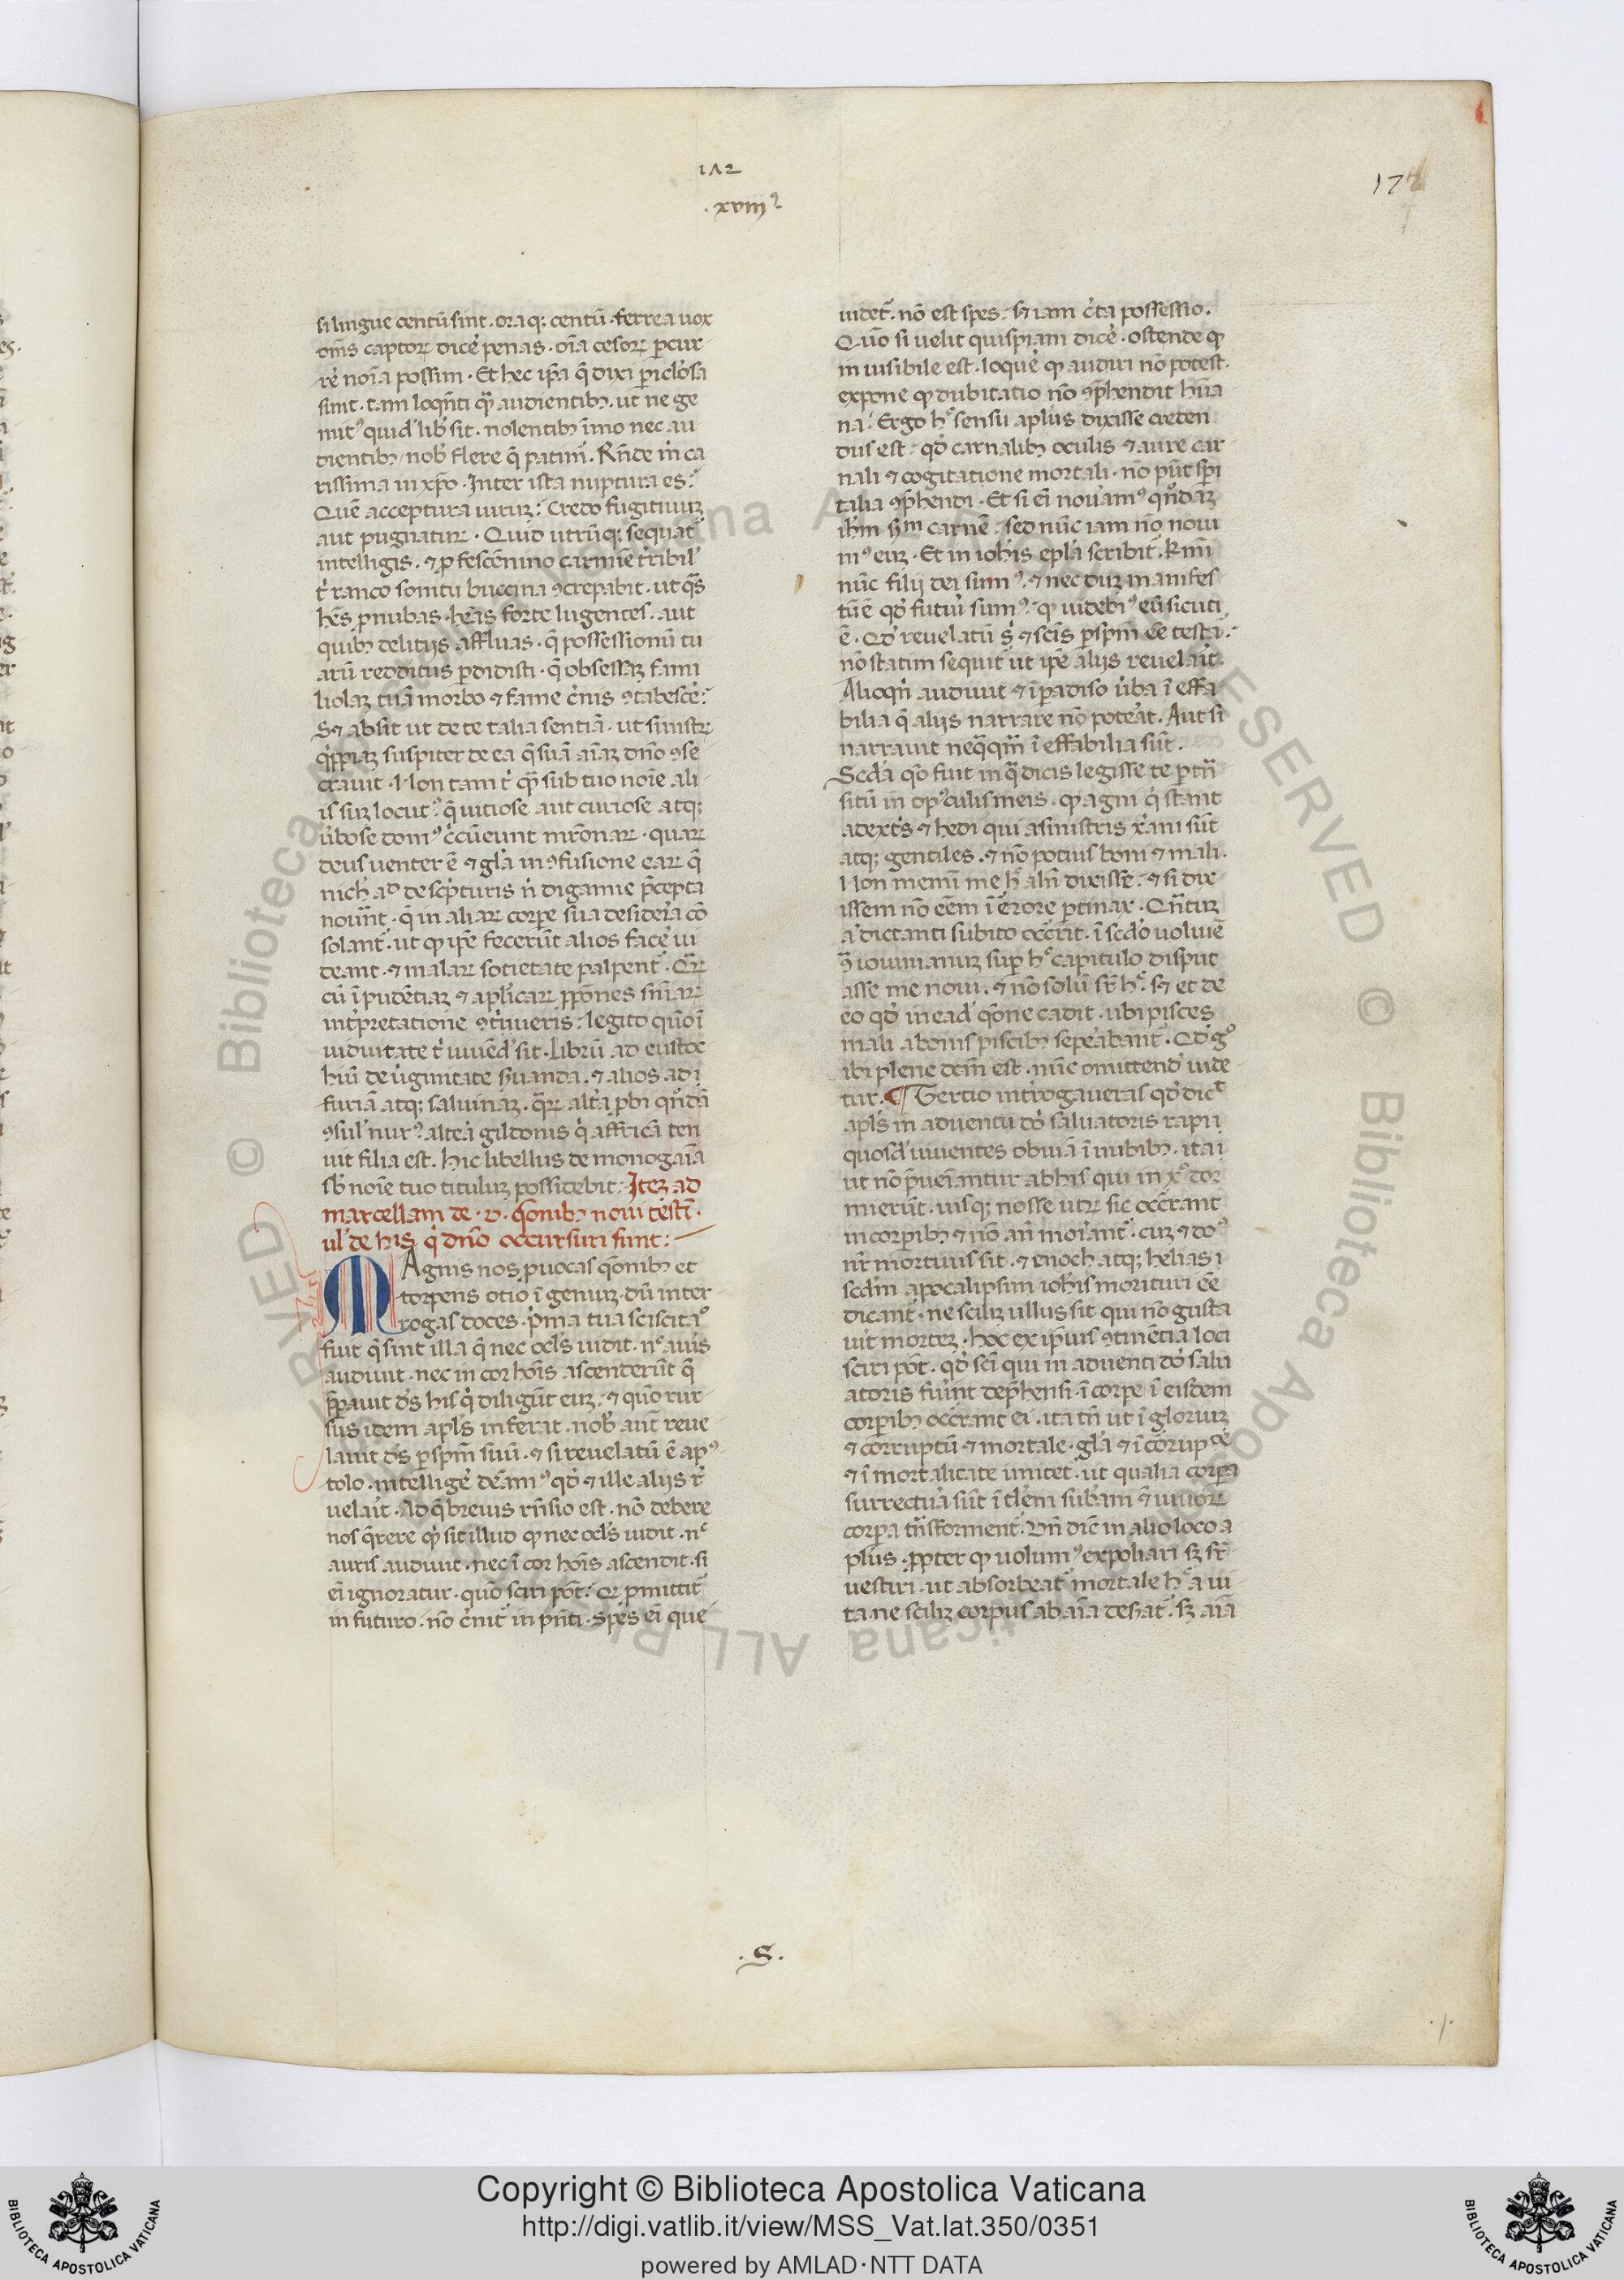 172
.xviii⁹.
178
si lingue centū sint · ora q; centū · ferrea uox
om̄s captoꝝ dicé penas · oīa cesoꝝ ꝑcur
ré noīa possim · Et hec ip̄a q̄ dixi ꝑiclosa
sunt · tam loq̄nti q̄ȝ audientib; · ut ne ge
mit⁹ quid' lib' sit · nolentib; īmo nec au
dientib; nob' flere q̄ patim̄. Rn̄de m̄ ca
rissima in xp̄o · Inter ista nuptura es:
Quē acceptura uiruȝ: Credo fugituruȝ
aut pugnatuꝝ · Quid utrūq; sequat̄
intelligis · ⁊ ꝓ fescēnino carmīe tribil'
t̓ rauco sonitu buccina ꝯcrepabit · ut q̄s
hēs ꝓnubas · heās forte lugentes · aut
quib; delitijs affluas · q̄ possessionū tu
arū redditus ꝑdidisti · q̄ obsessaȝ fami
liolaȝ tuā morbo ⁊ fame c̓nis ꝯtabescé:
Sȝ absit ut de te talia sentiā · ut sinistꝝ
q̓ppiaȝ suspiter de ea q̄ suā aīaȝ dn̄o ꝯse
crauit · Non tam t̓ q̄ȝ sub tuo noīe ali
is suȝ locut⁹ · q̄ uitiose aut curiose atq;
ūbose dom⁹ c̓cūeunt mr̄onaꝝ · quaꝝ
deus uenter ē ⁊ gl̄a in ꝯfusione eaꝝ q̄
nich' ad' de sc̄pturis n̓ digamie p̄cepta
nouūt · q̄ in aliaꝝ corꝑe sua desideria cō
solant̄ · ut ꝙ ip̄e fecerūt alios facé ui
deant · ⁊ malaꝝ societate palpent̄. Q̄ꝝ
cū īpudētiaȝ ⁊ apl̓icaꝝ ꝓpōnes sn̄iaꝝ
int̓pretatione ꝯt̓iueris: legito quō ī
uiduitate t̓ uiuēd' sit · Librū ad eustoc
hiū de ūginitate s̓uanda · ⁊ alios ad i
furiā atq; saluinaȝ · q̄ꝝ alt̓a ꝓbi qn̄dā
ꝯsul' nur⁹ · alt̓a gildonis q̓ affricā ten
uit filia est. hic libellus de monogam̄a
sb' noīe tuo titulum possidebit: Iteȝ ad
marcellam de · v · q̄onib; noui testī ·
ul' de his q̓ dn̄o occursuri sunt:
MAgnis nos ꝓuocas q̄onib; et
torpens otio īgeniuȝ · dū inter
rogas doces · p̓ma tua sciscita⁹
fuit q̄ sint illa q̄ nec ocl̄s uidit · n⁹ auris
audiuit · nec in cor hoīs ascenderūt q̄
p̄ꝑauit d̄s his q̓ diligūt euȝ · ⁊ quō rur
sus idem apl̄s inferat · nob' aut̄ reue
lauit d̄s ꝑ sp̄m suū · ⁊ si reuelatū ē ap⁹
tolo · intelligé deām⁹ qd̓ ⁊ ille alijs r̓
uelait̓ · Ad q̄ breuis rn̄sio est · nō debere
nos q̄rere q̓ sit illud ꝙ nec ocl̄s uidit · nᶜ
auris audiuit · nec ī cor hoīs ascendit · si
eī ignoratur · quō sciri pōt: Q̄ ꝓmittit̄
in futuro · nō c̓nit̄ in pn̄ti · Spes eī que
uidet̄ · nō est spes · sȝ iam c̓ta possessio.
Quō si uelit quispiam dicé · ostende ꝙ
inuisibile est · loqué ꝙ audiri nō potest ·
expone ꝙ dubitatio nō ꝯp̄hendit hūa
na: Ergo h⁹ sensu apl̄us dixisse creden
dus est · qd̓ carnalib; oculis ⁊ aure car
nali ⁊ cogitatione mortali · nō pn̄t sp̄i
talia ꝯp̄hendi · Et si eī nouam⁹ qn̄daȝ
ih̄m sᵐ carnē · sed nūc iam nō noui
m⁹ euȝ · Et in ioh̄is epl̄a scribit̄ · Kmi
nūc filij dei sum⁹ · ⁊ nec duȝ manifes
tū ē qd̓ futu̓ sum⁹ · ꝙ uidebi⁹ eū sicuti
ē · Qd̓ reuelatū s̓ ⁊ scīs ꝑ sp̄m eē testā ·
nō statim sequit̄ ut ip̄e alijs reuelait̓ ·
Alioqn̓ audiuit ⁊ ī padiso ūba ī effa
bilia q̄ alijs narrare nō poteat̓. Aut si
narrauit neq̄q̄m̄ ī effabilia sūt ·
Sc̄da qō fuit in q̄ dicis legisse te ꝑ tn̄
sitū in op⁹culis meis · ꝙ agni q̓ stant
adext̓s ⁊ hedi qui asinistris xr̄ani sūt
atq; gentiles · ⁊ nō potius boni ⁊ mali.
Non meminī me h⁹ aln̄ dixisse · ⁊ si dix
issem nō eēm ī erore ꝑtinax · Qn̄tuȝ
a' dictanti subito occ̄rit · ī sc̄do uoluīe
ꝯ̄ iouinianuȝ suꝑ h⁹ capitulo disput
asse me noui · ⁊ nō solū sr̄ h⁹ · sȝ et de
eo qd̓ in ead' q̄one cadit · ubi pisces
mali abonis piscib; sepeābant̄ · Qd̓ g⁹
ibi plene dcm̄ est · nūc omittend' uide
tur. ¶ Tertio int̓rogaueras qd̓ dicᵗ
apl̄s in aduentu dō saluatoris rapi i
quosd' uiuentes obuiā ī nubib; · ita i
ut nō p̄ueniantur ab his qui in x⁹ dor
mierūt · uisq; nosse utꝝ sic occ̄rant
in corꝑib; ⁊ nō an̄ moriant̄ · cuȝ ⁊ do⁹
nr̄ mortuus sit · ⁊ enoch atq; helias i
scd̄m apocalipsim ioh̄is morituri eē
dicant̄ · ne sciliȝ ullus sit qui nō gusta
uit morteȝ · hoc ex ip̄ius ꝯtinētia loci
sciri pōt · qd̓ sc̄i qui in aduentu dō salu
atoris fuint dep̄hensi · ī corꝑe ī eisdem
corꝑib; occ̄rant ei · ita tn̄ ut īgloriuȝ
⁊ corruptū ⁊ mortale · gl̄a ⁊ ī corrup oē
⁊ ī mortalitate mutet̄ · ut qualia corꝑa
surrectu̓a sūt ī tl̄em subām ē uiuoꝝ
corꝑa tn̄sforment̄ · Vn̄ dic̄ in alio loco a
pl̄us · ꝓpter ꝙ uolum⁹ expoliari sȝ sr̄
uestiri · ut absorbeat̄ mortale h⁹ a ui
ta · ne sciliȝ corpus ab aīa deseat̄ · sȝ aīa
.S.
Copyright © Biblioteca Apostolica Vaticana
http://digi.vatlib.it/view/MSS_Vat.lat.350/0351
powered by AMLAD·NTT DATA